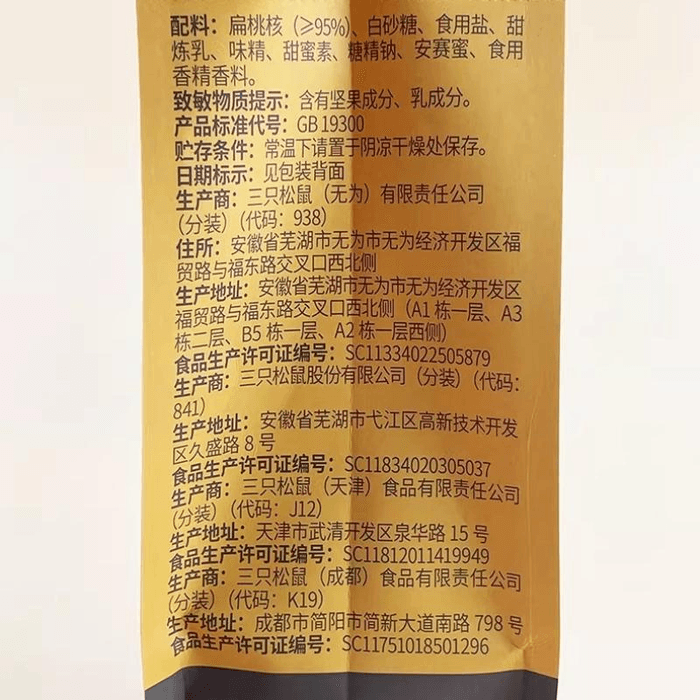 配料：扁桃核（≥95%）、白砂糖、食用盐、甜
炼乳、味精、甜蜜素、糖精钠、安赛蜜、食用
香精香料。
致敏物质提示：含有坚果成分、乳成分。
产品标准代号：GB 19300
贮存条件：常温下请置于阴凉干燥处保存。
日期标示：见包装背面
生产商：三只松鼠（无为）有限责任公司
（分装）（代码：938）
住所：安徽省芜湖市无为市无为经济开发区福
贸路与福东路交叉口西北侧
生产地址：安徽省芜湖市无为市无为经济开发区
福贸路与福东路交叉口西北侧（A1 栋一层、A3
栋二层、B5 栋一层、A2 栋一层西侧）
食品生产许可证编号：SC11334022505879
生产商：三只松鼠股份有限公司（分装）（代码：
841）
生产地址：安徽省芜湖市弋江区高新技术开发
区久盛路 8 号
食品生产许可证编号：SC11834020305037
生产商：三只松鼠（天津）食品有限责任公司
（分装）（代码：J12）
生产地址：天津市武清开发区泉华路 15 号
食品生产许可证编号：SC11812011419949
生产商：三只松鼠（成都）食品有限责任公司
（分装）（代码：K19）
生产地址：成都市简阳市简新大道南路 798 号
食品生产许可证编号：SC11751018501296